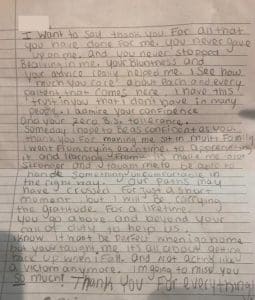 I want to say thank you for all that
you have done for me. you never gave
up on me. and you never stopped
Bealiving in me. your bluntness and
your advice really helped me. I see how
much you care about Each and every
patient that comes here. I have this
trust in you that i dont have in many
people. I admire your confidence
and your Zero B.S. tolerance.
Someday i hope to be as confident as you.
thank you for making me sit in multi Family
I went from crying each time to appreciating
it and learning from it. its made me alot
stronger and taught me to be able to
handle something uncomfortable in
the right way. our paths may
have crossed for just a short
moment. but I will be carrying
the gratitude for a lifetime.
you go above and beyond your
call of duty to help us. I
know it wont be perfect when im home
but you taught me its all about getting
back up when i fall and not acting like
a victim anymore. im going to miss you
so much! Thank you for everything!